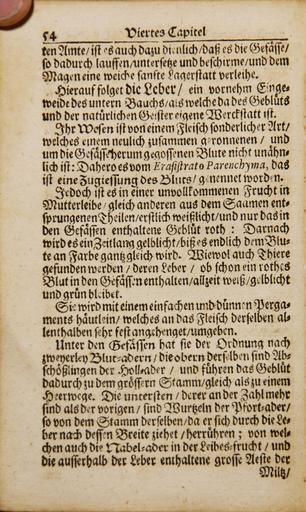 54 Viertes Capitel
ten Amte/ ist es auch dazu dienlich/ daß es die Gefässe/
so dadurch lauffen/ untersetze und beschirme/ und dem
Magen eine weiche sanfte Lagerstatt verleihe.
Hierauf folget die Leber/ ein vornehm Einge-
weidt des untern Bauchs/ als welche da des Geblüts
und der natürlichen Geister eigene Werckstatt ist.
Ihr Wesen ist von einem Fleisch sonderlicher Art/
welches einem neulich zusammen geronnenen/ und
um die Gefässe herum gegossenen Blute nicht unähn-
lich ist: Dahero es vom Erasistrato Parenchyma, das
ist eine Zugiessung des Bluts/ genennet worden.
Jedoch ist es in einer unvollkommenen Frucht in
Mutterleibe/ gleich anderen aus dem Saamen ent-
sprungenen Theilen/ erstlich weißlicht/ und nur das in
den Gefässen enthaltene Geblüt roth: Darnach
wird es ein Zeitlang gelblicht/ biß es endlich dem Blu-
te an Farbe gantz gleich wird. Wiewol auch Thiere
gefunden werden/ deren Leber/ ob schon ein rothes
Blut in den Gefässen enthalten/ allzeit weiß/ gelblicht
und grün bleibet.
Sie wird mit einem einfachen und dünnen Perga-
ments häutlein/ welches an das Fleisch derselben al-
lenthalben sehr fest angehenget/ umgeben.
Unter den Gefässen hat sie der Ordnung nach
zweyerley Blut-adern/ die obern derselben sind Ab-
schößlingen der Holl-ader/ und führen das Geblüt
dadurch zu dem grössern Stamm/ gleich als zu einem
Heerwege. Die untersten/ derer an der Zahl mehr
sind als der vorigen/ sind Wurtzeln der Pfort-ader/
so von dem Stamm derselben/ da er sich durch die Le-
ber nach dessen Breite ziehet/ herrühren; von wel-
chen auch die Nabel-ader in der Leibes-frucht/ und
die ausserhalb der Leber enthaltene grosse Aeste der
Miltz/